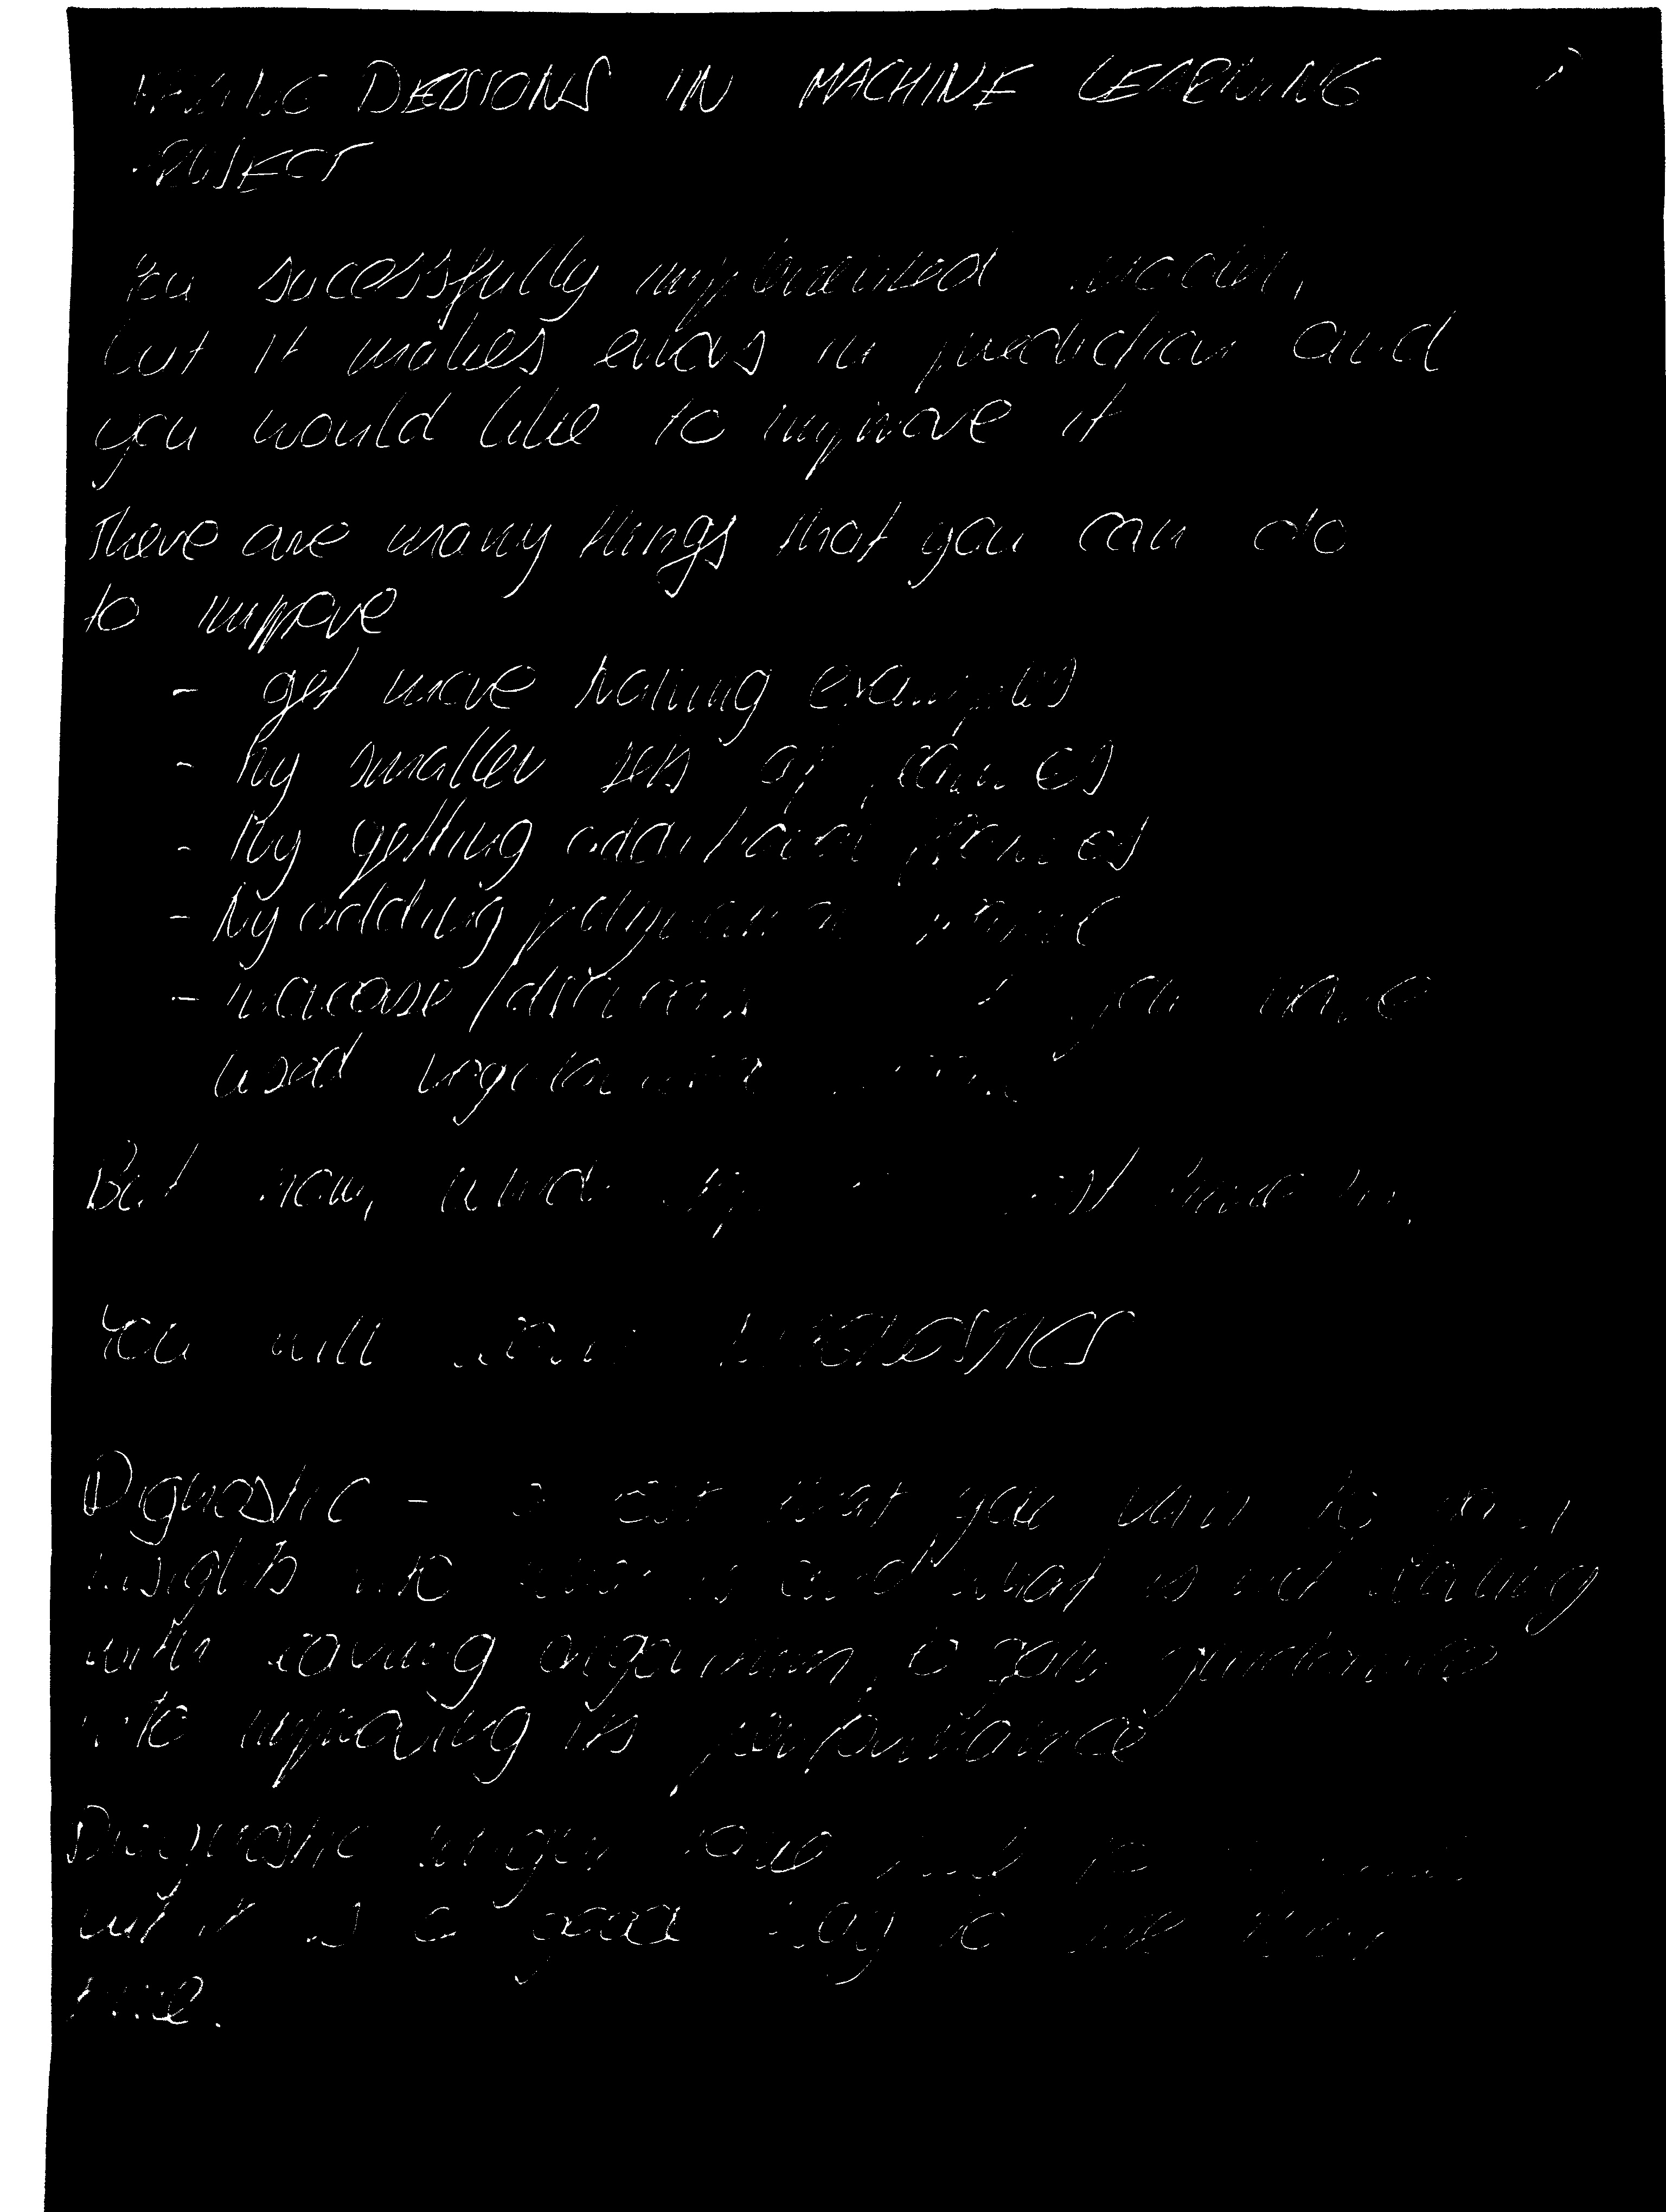 MAKING DECISIONS IN MACHINE LEARNING
PROJECT
You sucessfully implemented model,
but it makes errors in prediction and
you would like to improve it
There are many things that you can do
to improve
- get more training examples
- try smaller sets of features
- try getting additional features
- try adding polynomial
- increase/decrease you have
used regularization
But how,
You will DIAGNOSTICS
Dignostic - a test that you run to
insights into what is and what is not working
with learning algorithm, to gain guidance
into improving its performance
Diagnostic might take
but it is a good way to use your
time.